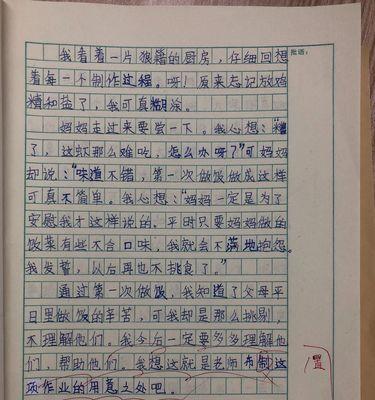 批语：
我看着一片狼籍的厨房，仔细回想
着每一个制作过程。呀！原来忘记放鸡
精和盐了，我可真糊涂。
妈妈走过来要尝一下。我心想：“糟
了，这虾那么难吃，怎么办呀？”可妈妈
却说：“味道不错，第一次做饭做成这样
可真不简单。我心想：“妈妈一定是为了
安慰我才这样说的。平时只要妈妈做的
饭菜有些不合口味，我就会不满地抱怨。
我发誓，以后再也不挑食了。”
通过第一次做饭，我知道了父母平
日里做饭的辛苦，可我却是那么挑剔，
不理解他们。我今后一定要多多理解他
们，帮助他们。我想这就是老师布制这
置
项作业的用意之处吧。